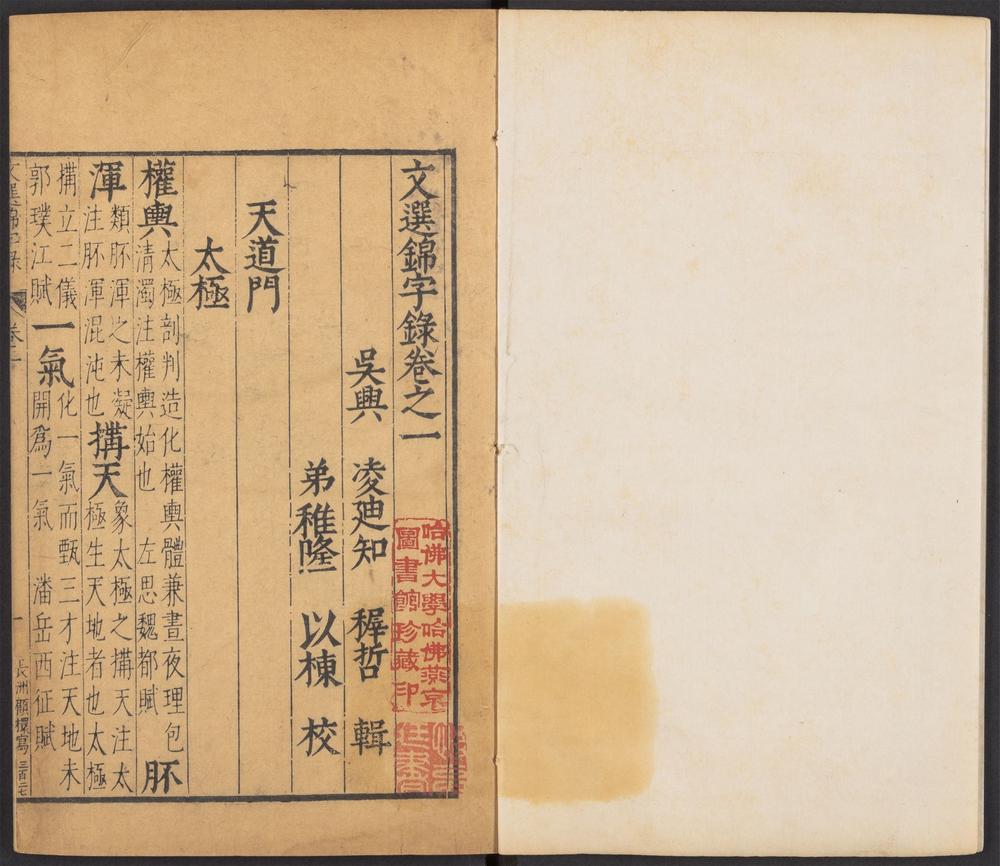 文選錦字錄卷之一
吳興 凌迪知 穉哲 輯
弟稚隆 以棟 校
天道門
太極
權輿太極剖判造化權輿體兼晝夜理包
清濁注權輿始也 左思魏都賦胚
渾類胚渾之未凝
注胚渾混沌也搆天象太極之搆天注太
極生天地者也太極
搆立二儀
郭璞江賦一氣化一氣而甄三才注天地未
開爲一氣 潘岳西征賦
文選錦字录
卷之一
一
長洲顧櫰寫 三百二七
哈佛大學哈佛燕京
圖書館珍藏印